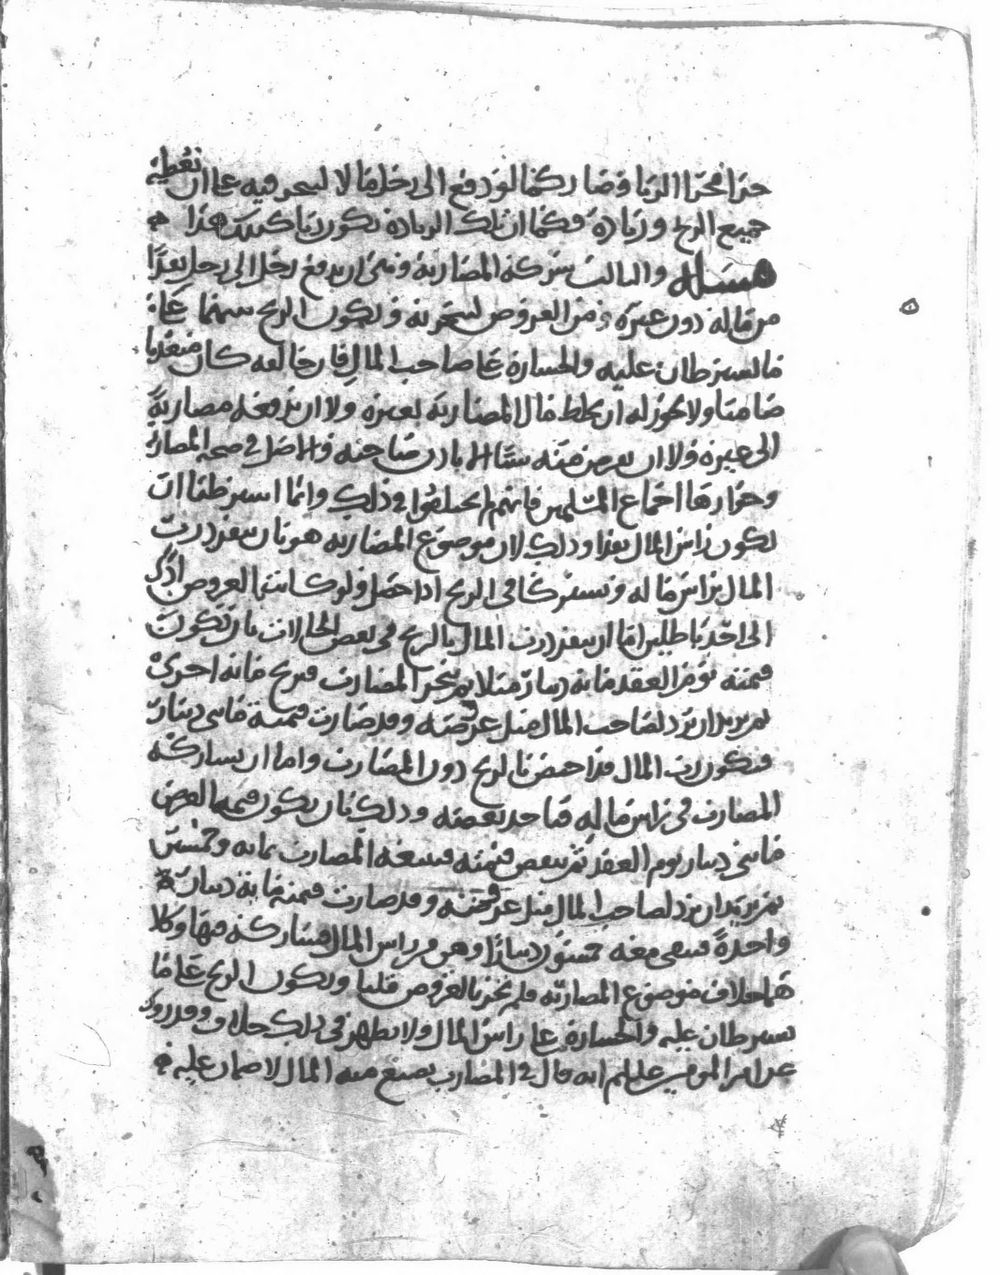 جزا مجرا الربا فصار كما لو دفع الى رجل مالا ليتجر فيه على ان نعطيه
جميع الربح وزيادة فكما ان تلك الزيادة تكون ربا كذلك هذا
مسئله والثالث شركة المضاربة وهى ان يدفع رجل الى رجل نقدًا
من ماله دون غيره من العروض ليتجر به ويكون الربح بينهما على ما
يشترطان عليه والخسارة على صاحب المال فان خالفه كان متعديا
ضامنا ولا يجوز له ان يخلط مال المضاربة بغيره ولا ان يدفعه مضاربةً
الى غيره ولا ان يقرض منه شيئا الا باذن صاحبه والاصل في صحة المضاربة
وجوازها اجماع المسلمين فانهم لم يختلفوا في ذلك وانما اشترطنا ان
يكون راس المال نقدا وذلك لان موضوع المضاربه هو بان ينفرد رب
المال براس ماله ويشتركا فى الربح اذا حصل ولو كانت بالعروض ادى
الى احد باطلين اما ان ينفرد رب المال بالربح فى بعض الحالات بان تكون
قيمته يوم العقد مائة دينار مثلا ثم يتجر المضارب فيربح مائه اخرى
ثم يريد ان يرد لصاحب المال مثل عرضه وقد صارت قيمته مائتى دينار
فيكون رب المال قد اختص بالربح دون المضارب واما ان يشاركه
المضارب فى راس ماله فياخذ بعضه وذلك بان يكون قيمة العرض
مائتى دينار يوم العقد ثم ينقص قيمته فيبيعه المضارب بمائه وخمسين
ثم يريد ان يرد لصاحب المال مثل عرضه وقد صارت قيمته مائة دينار
واحدةً فيبقى معه خمسون دينارًا وهى من راس المال فيشاركه فيها وكلا
هما خلاف موضوع المضاربه فلم يجز بالعروض قلنا ويكون الربح على ما
يشترطان عليه والخسارة على راس المال ولا يظهر فى ذلك خلاف وقد روى
عن امير المومنين عليلم انه قال في المضارب يضيع منه المال لا ضمان عليه